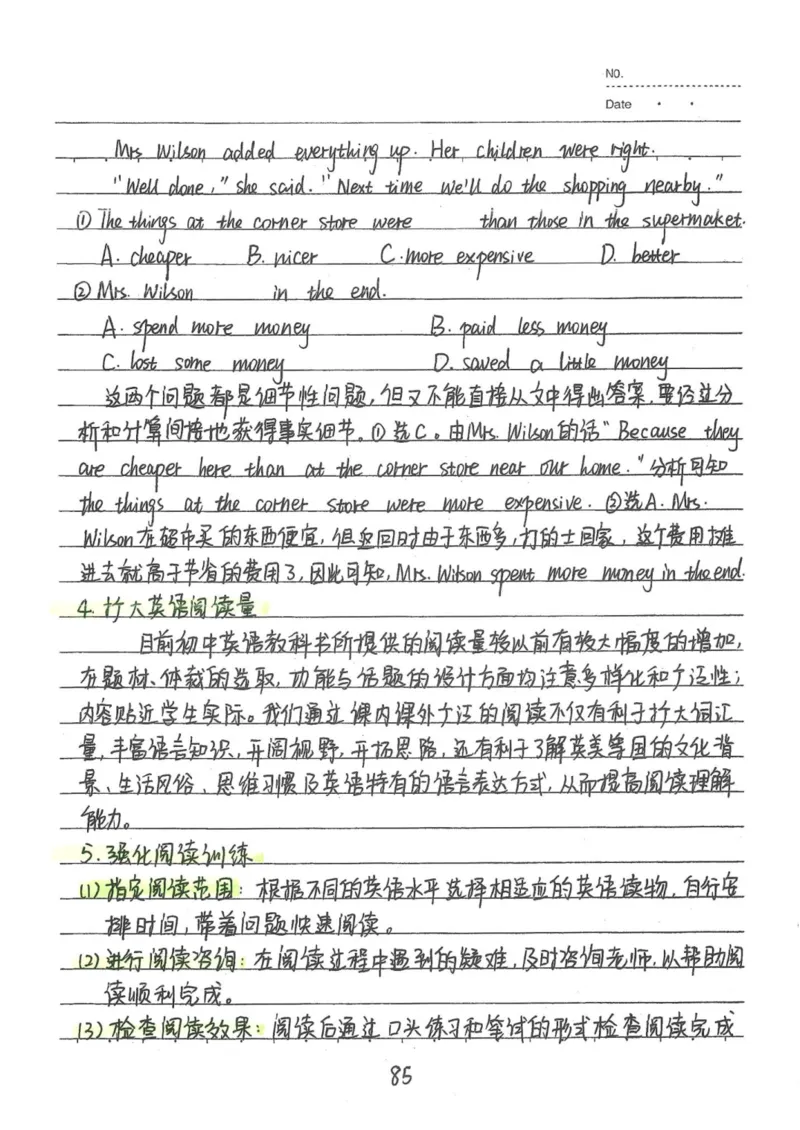 NO.
Date
Mrs Wilson added everything up. Her children were right.
"Well done," she said. "Next time we'll do the shopping nearby."
① The things at the corner store were than those in the supermaket.
A. cheaper B. nicer C. more expensive D. better
② Mrs. Wilson in the end.
A. spend more money B. paid less money
C. lost some money D. saved a little money
这两个问题都是细节性问题,但又不能直接从文中得出答案,要经过分
析和计算间接地获得事实细节。①选C。由Mrs. Wilson的话"Because they
are cheaper here than at the corner store near our home."分析可知
the things at the corner store were more expensive. ②选A. Mrs.
Wilson在超市买的东西便宜,但返回时由于东西多,打的士回家,这个费用摊
进去就高于节省的费用了,因此可知,Mrs. Wilson spent more money in the end.
4. 扩大英语阅读量
目前初中英语教科书所提供的阅读量较以前有较大幅度的增加,
在题材、体裁的选取,功能与话题的设计方面均注意多样化和广泛性;
内容贴近学生实际。我们通过课内课外广泛的阅读不仅有利于扩大词汇
量,丰富语言知识,开阔视野,开拓思路,还有利于了解英美等国的文化背
景、生活风俗、思维习惯及英语特有的语言表达方式,从而提高阅读理解
能力。
5. 强化阅读训练
(1) 指定阅读范围:根据不同的英语水平选择相适应的英语读物,自行安
排时间,带着问题快速阅读。
(2) 进行阅读咨询:在阅读过程中遇到的疑难,及时咨询老师,以帮助阅
读顺利完成。
(3) 检查阅读效果:阅读后通过口头练习和笔试的形式检查阅读完成
85